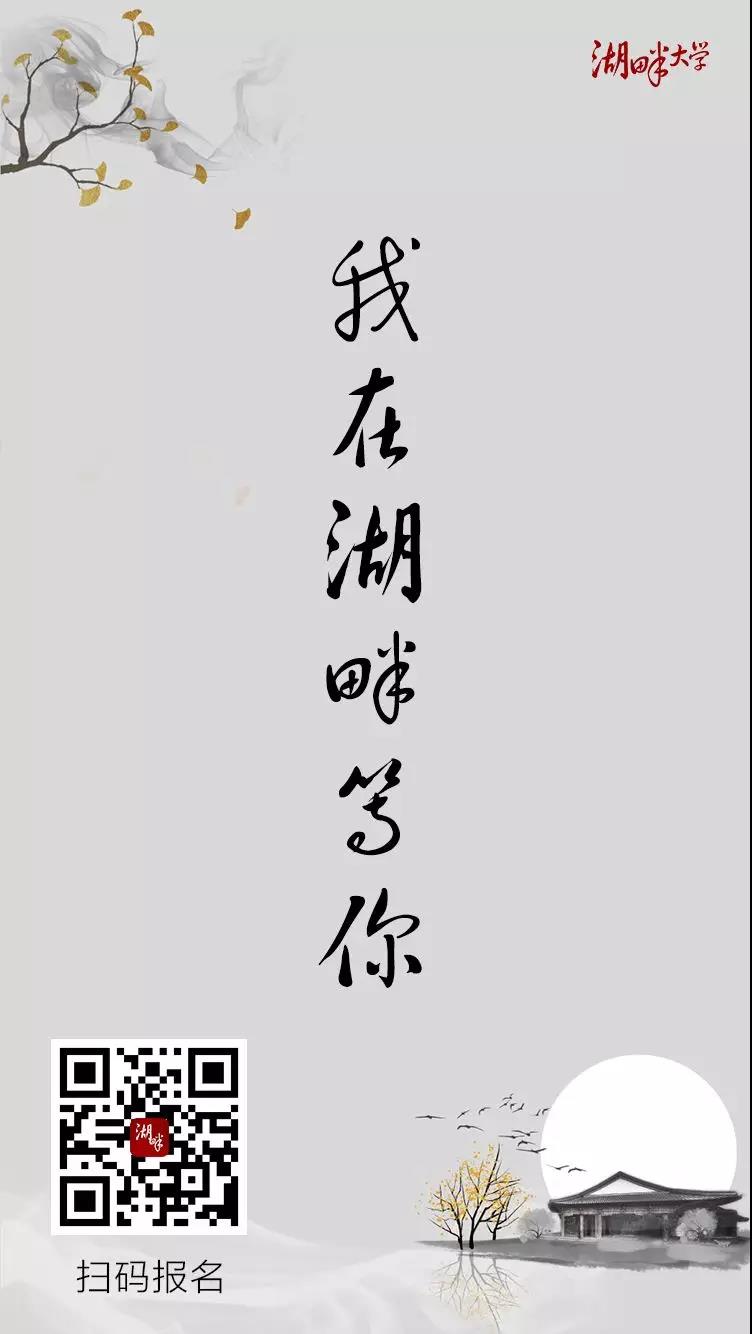 湖畔大学
我在湖畔等你
湖畔
扫码报名